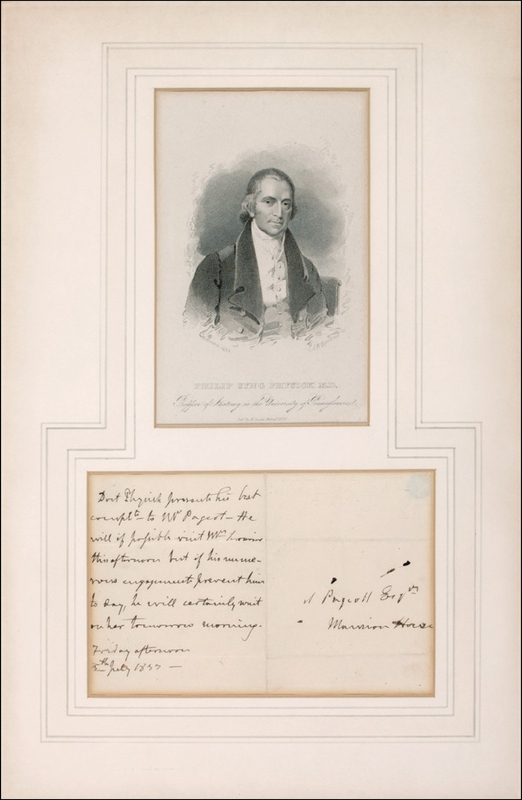 PHILIP SYNG PHYSICK M.D.
Professor of Anatomy in the University of Pennsylvania.
Doct Physick presents his best
complts to Mr Pageot – He
will if possible visit Mrs
this afternoon but if his nume-
rous engagements prevent him
to day, he will certainly wait
on her tomorrow morning.
Friday afternoon
July 18
A Pageott Esqr
Mansion House